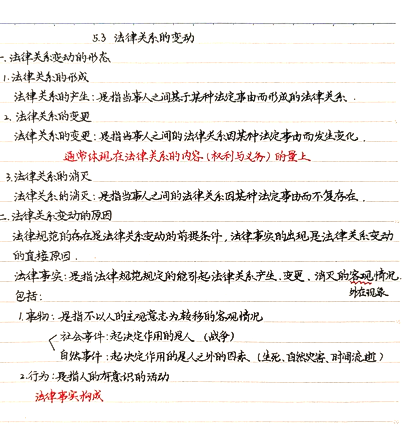 5.3 法律关系的变动
一.法律关系变动的形态
1.法律关系的形成
法律关系的产生:是指当事人之间基于某种法定事由而形成的法律关系.
2.法律关系的变更
法律关系的变更:是指当事人之间的法律关系因某种法定事由而发生变化.
通常体现在法律关系的内容(权利与义务)的量上
3.法律关系的消灭
法律关系的消灭:是指当事人之间的法律关系因某种法定事由而不复存在.
二.法律关系变动的原因
法律规范的存在是法律关系变动的前提条件,法律事实的出现是法律关系变动
的直接原因.
法律事实:是指法律规范规定的能引起法律关系产生、变更、消灭的客观情况
包括: 外在现象
1.事物:是指不以人的主观意志为转移的客观情况
社会事件:起决定作用的是人(战争)
自然事件:起决定作用的是人之外的因素.(生死、自然灾害、时间流逝)
2.行为:是指人的有意识的活动
法律事实构成